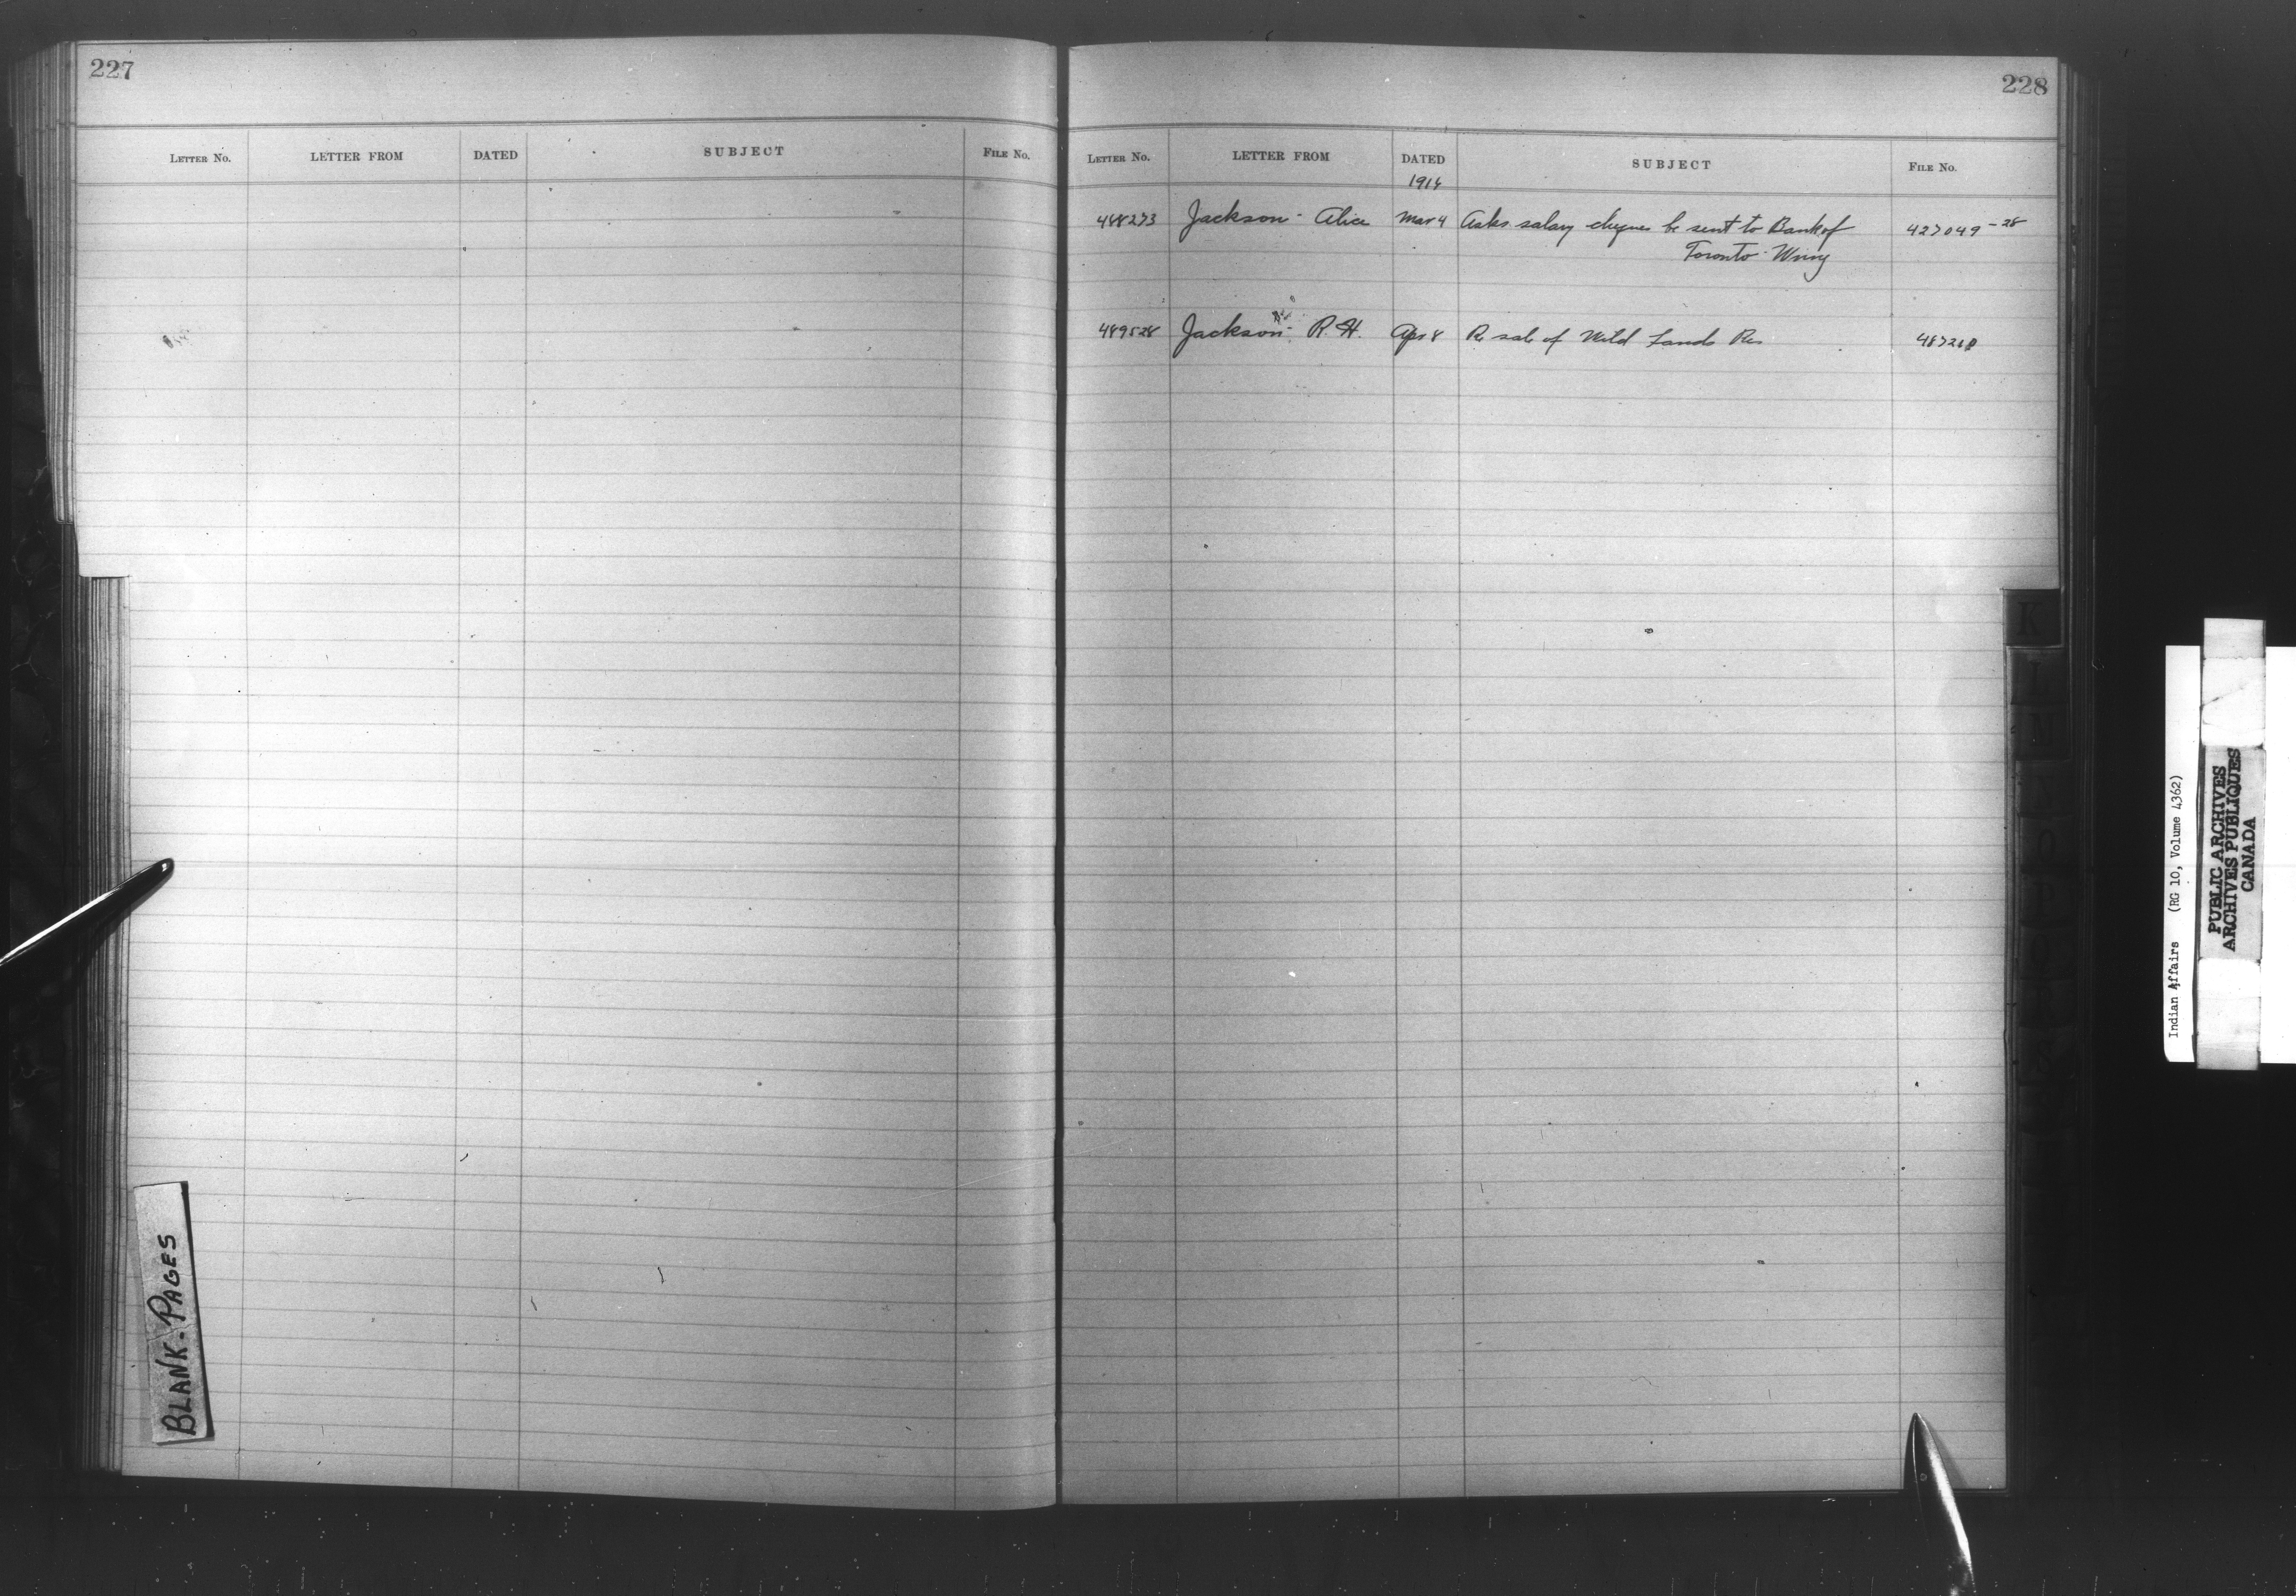 227
LETTER No. LETTER FROM DATED SUBJECT FILE No.
BLANK-PAGES
228
LETTER No. LETTER FROM DATED SUBJECT FILE No.
1916
488273 Jackson - Alice Mar 4 Asks salary cheques be sent to Bank of 427049-28
Toronto - Wnng
489528 Jackson - R. H. Apr 8 Re sale of Wild Lands Res
K
Indian Affairs (RG 10, Volume 4362)
PUBLIC ARCHIVES
ARCHIVES PUBLIQUES
CANADA